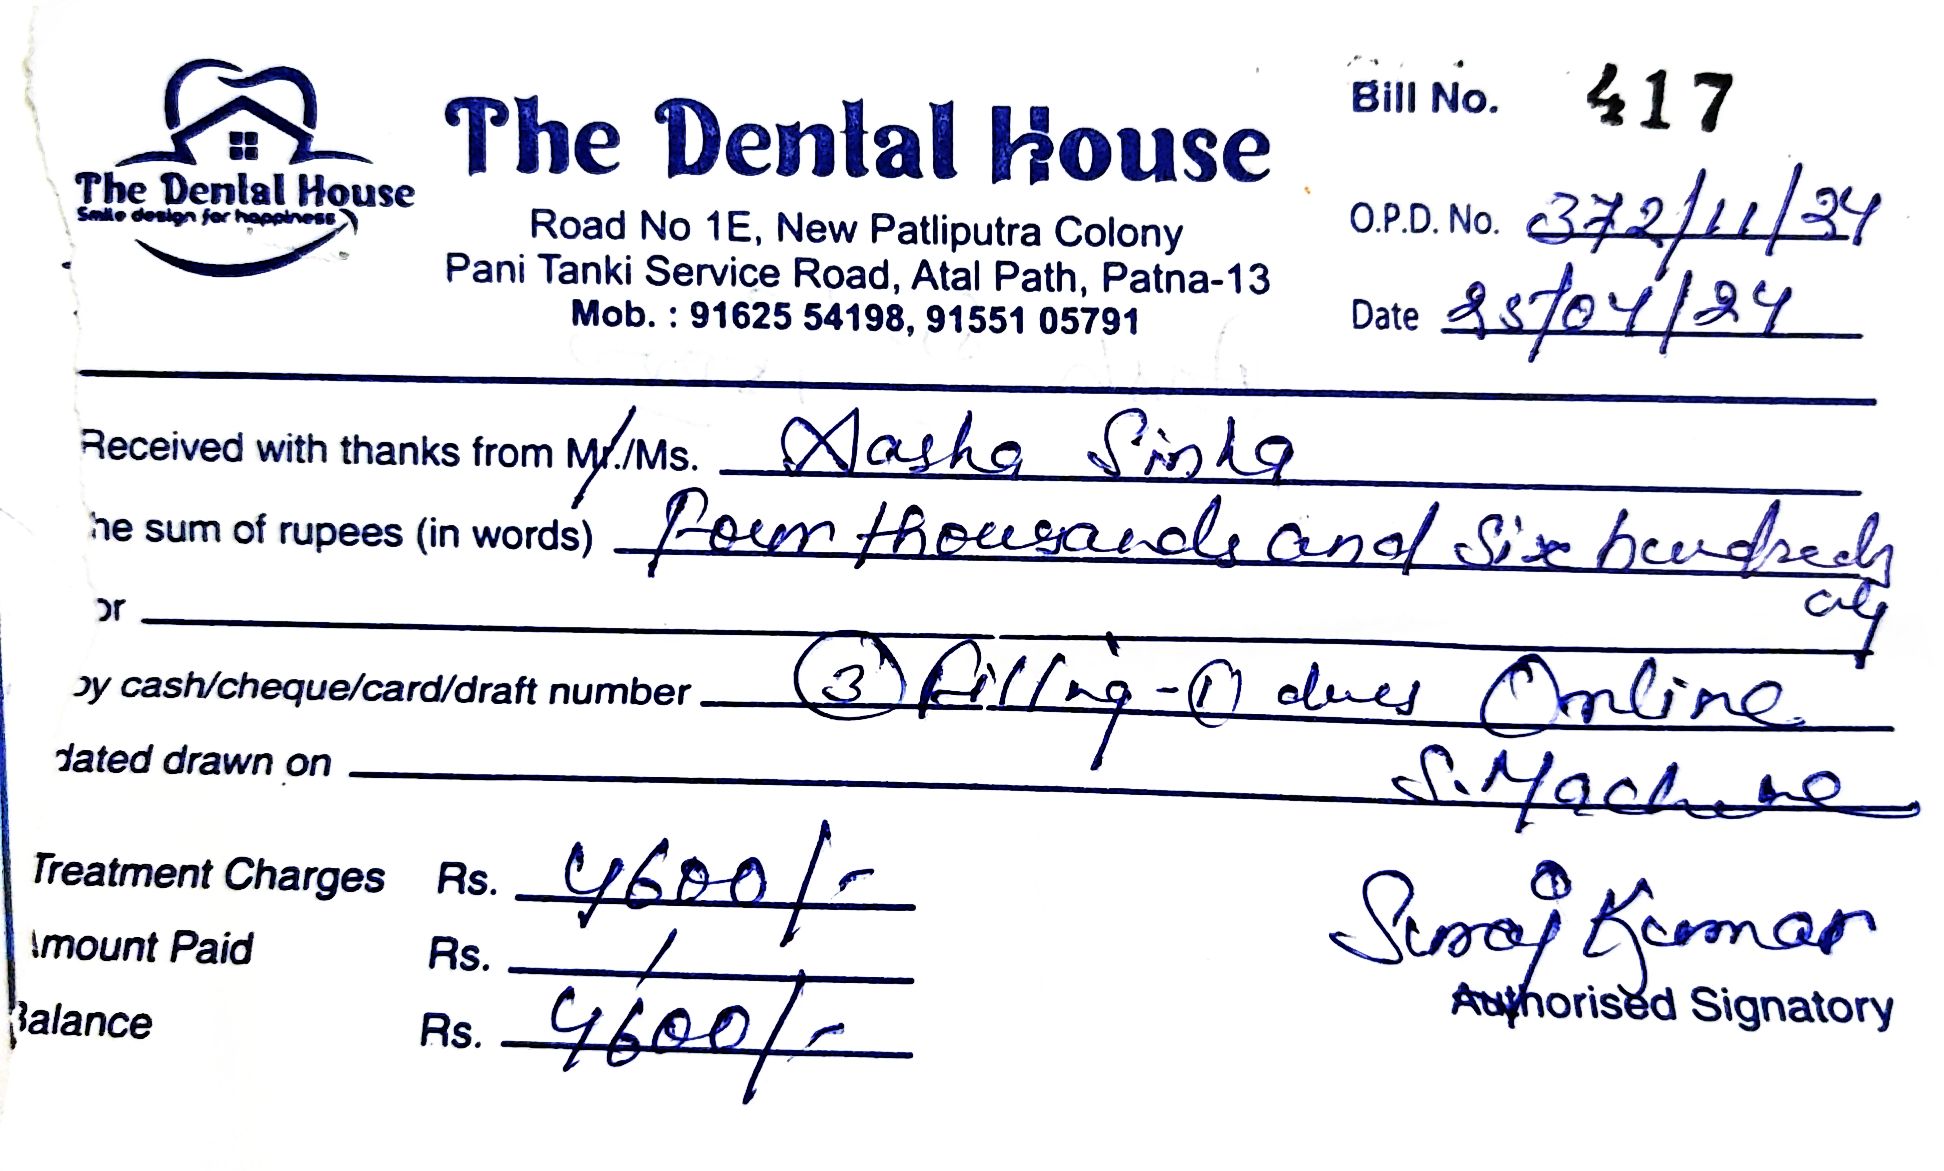 The Dental House
Smile design for happiness
The Dental House
Road No 1E, New Patliputra Colony
Pani Tanki Service Road, Atal Path, Patna-13
Mob. : 91625 54198, 91551 05791
Bill No. 417
O.P.D. No. 372/11/24
Date 25/04/24
Received with thanks from Mr./Ms. Aasha Sinha
he sum of rupees (in words) Four thousands and Six hundreds
only
or
by cash/cheque/card/draft number ③ filling-① dues Online
dated drawn on S. Machine
Treatment Charges Rs. 4600/-
Amount Paid Rs. /
Balance Rs. 4600/-
Suraj Kumar
Authorised Signatory